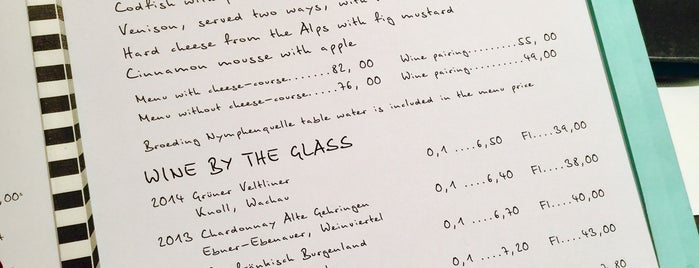 Codfish with
Venison, served two ways, with
Hard cheese from the Alps with fig mustard
Cinnamon mousse with apple
Menu with cheese-course.......82, 00 Wine pairing.........55, 00
Menu without cheese-course.....76, 00 Wine pairing.........49,00
Broeding Nymphenquelle table water is included in the menu price
WINE BY THE GLASS
2014 Grüner Veltliner 0,1 ....6,50 Fl....39,00
Knoll, Wachau
2013 Chardonnay Alte Gehringen 0,1 ....6,40 Fl....38,00
Ebner-Ebenauer, Weinviertel
fränkisch Burgenland 0,1 ....6,70 Fl....40,00
0,1 ....7,20 Fl....43,00
,80
,00